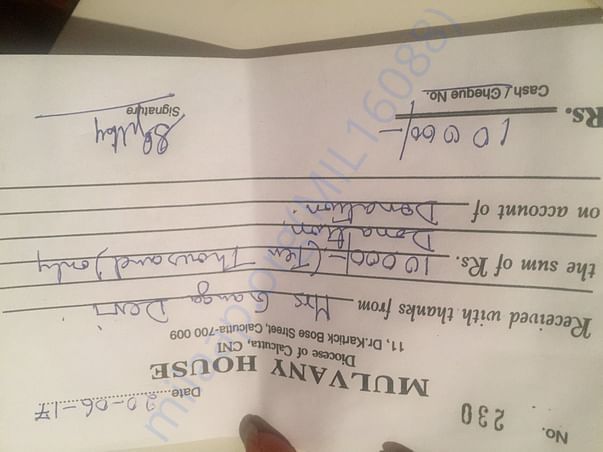 No. 230
Date 20-06-17
MULVANY HOUSE
Diocese of Calcutta, CNI
11, Dr.Kartick Bose Street, Calcutta-700 009
Received with thanks from Mrs Ganga Devi
the sum of Rs. 10000/- (Ten Thousand) only
Donation
on account of Donation.
Rs. 10000/-
Cash / Cheque No.
Signature
milaap.org (MIL 16088)